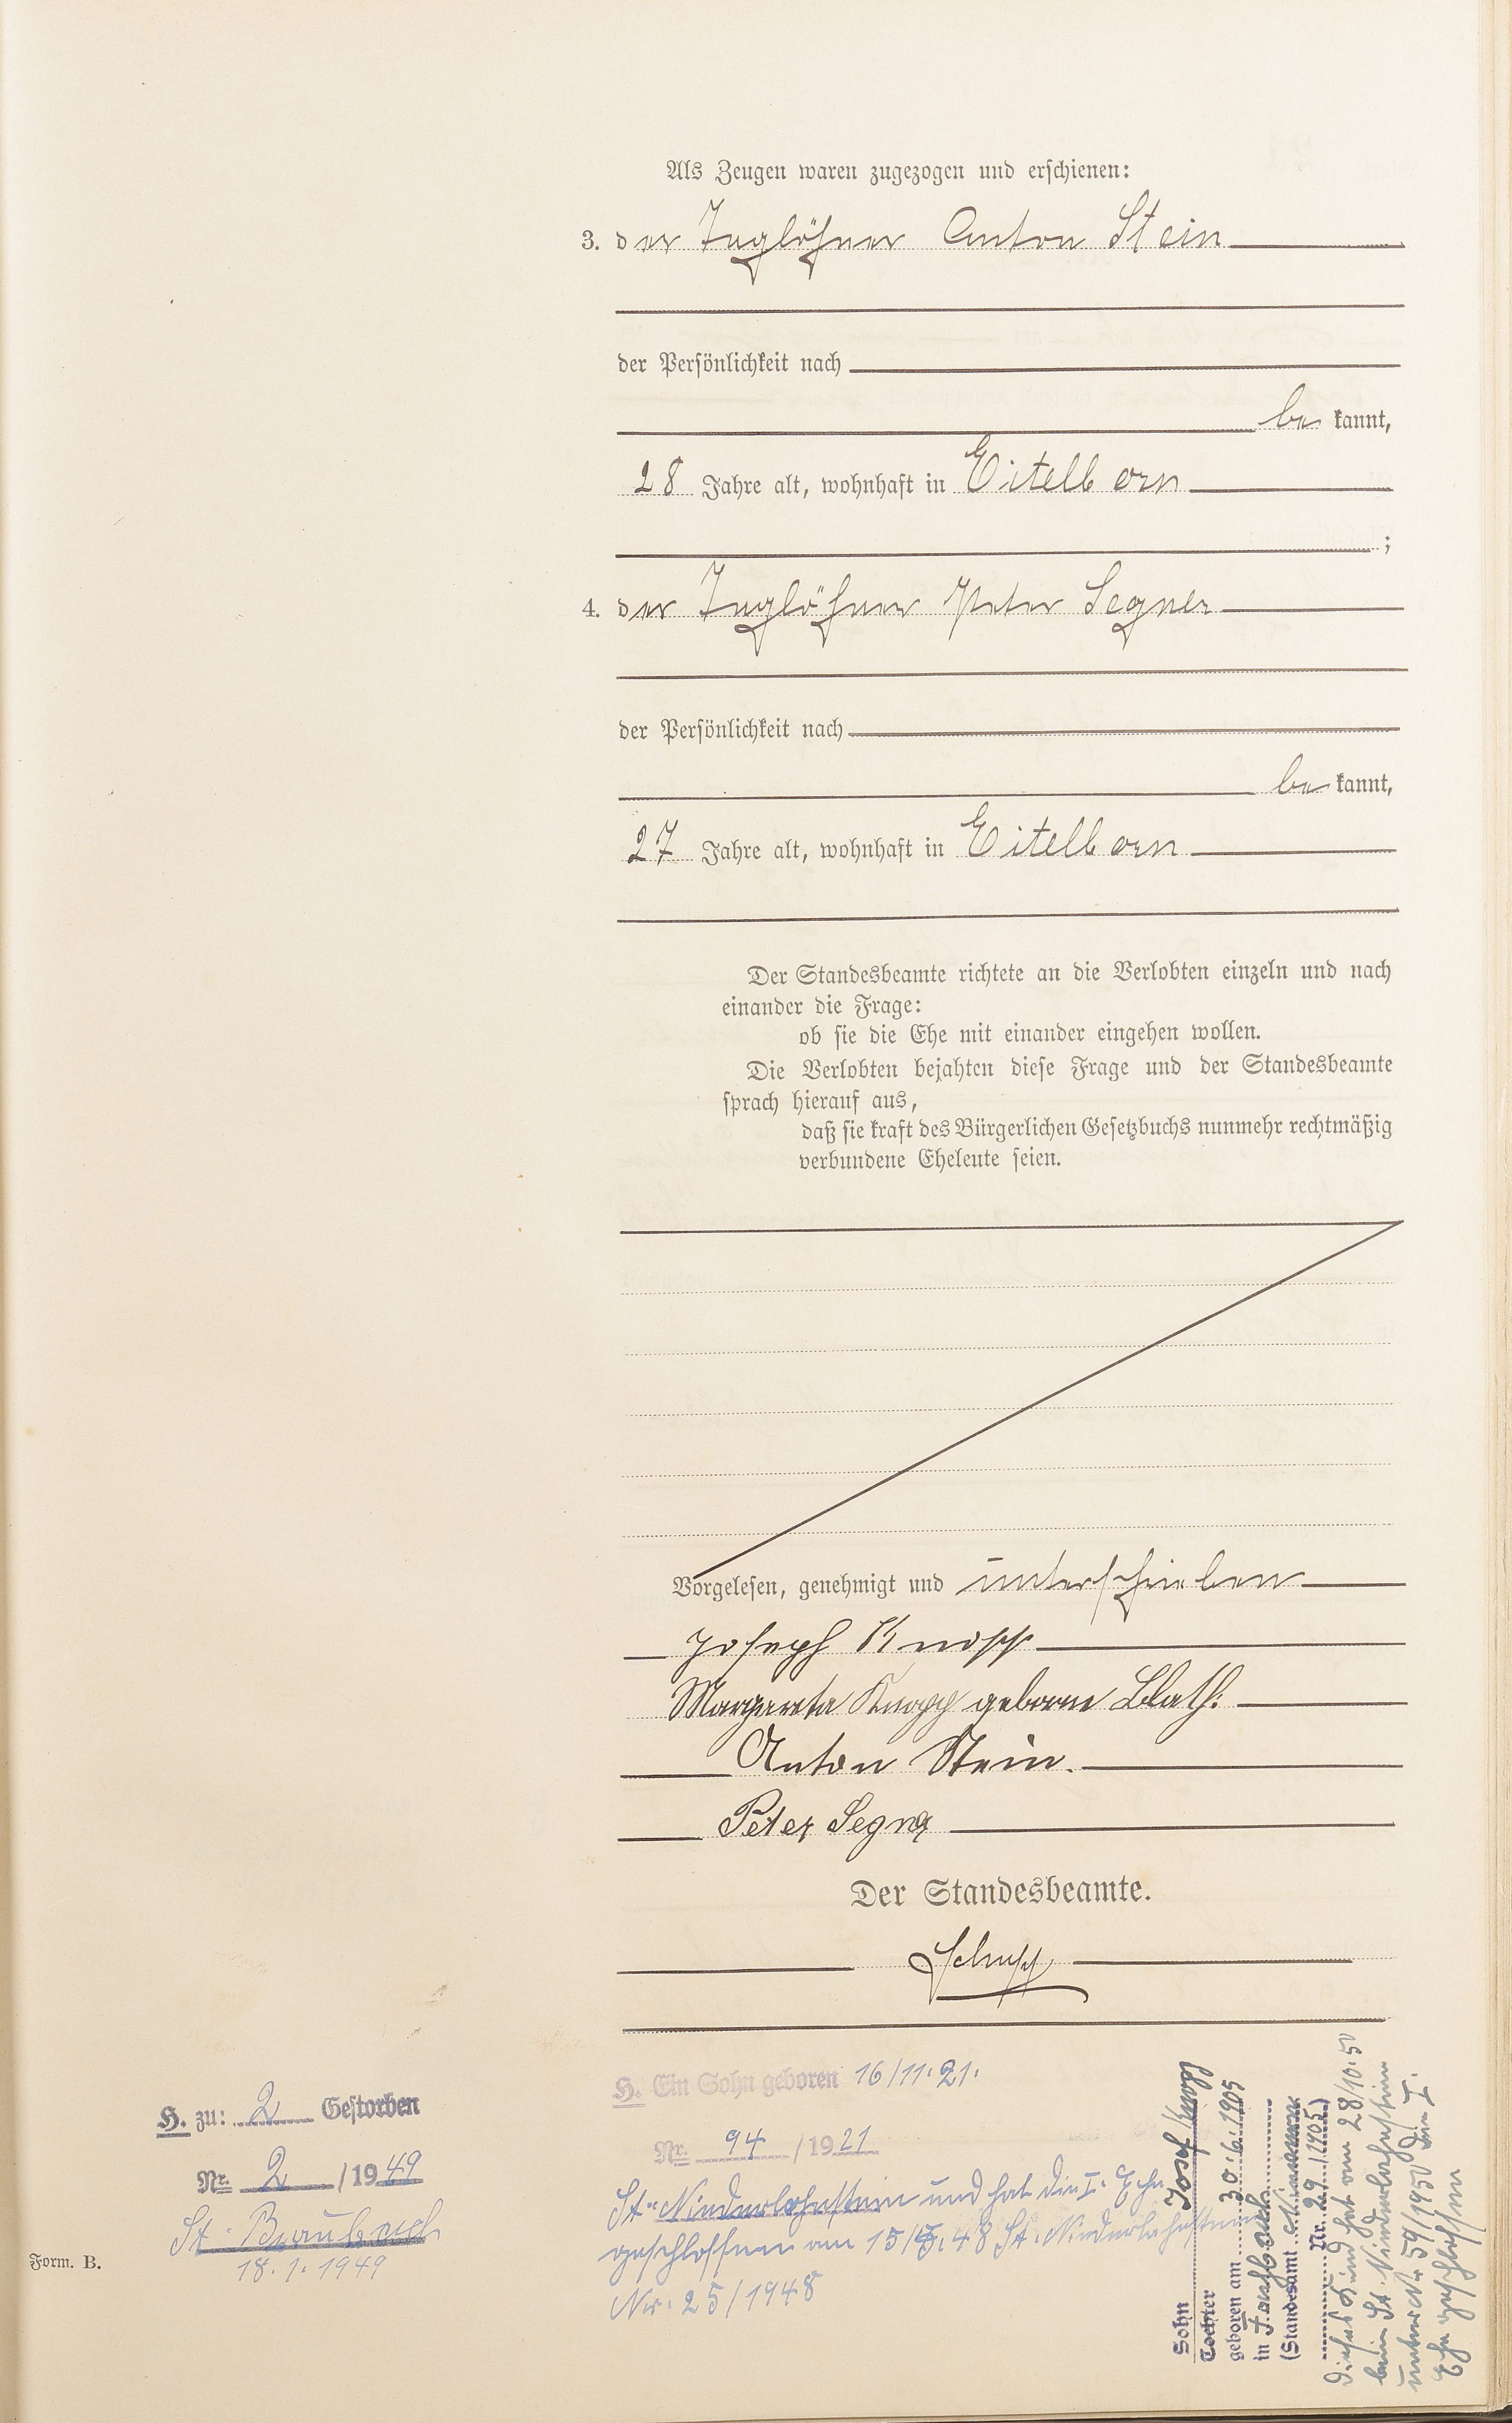 Als Zeugen waren zugezogen und erschienen:
3. der Taglöhner Anton Stein
der Persönlichkeit nach
be kannt,
28 Jahre alt, wohnhaft in Eitelborn
;
4. der Taglöhner Peter Segner
der Persönlichkeit nach
be kannt,
27 Jahre alt, wohnhaft in Eitelborn
Der Standesbeamte richtete an die Verlobten einzeln und nach
einander die Frage:
ob sie die Ehe mit einander eingehen wollen.
Die Verlobten bejahten diese Frage und der Standesbeamte
sprach hierauf aus,
daß sie kraft des Bürgerlichen Gesetzbuchs nunmehr rechtmäßig
verbundene Eheleute seien.
Vorgelesen, genehmigt und unterschrieben
Joseph Knopp
Margareta Knopp geborne Blath.
Anton Stein.
Peter Segner
Der Standesbeamte.
Schupp
H. zu: 2 Gestorben
Nr. 2 /1949
St. Braubach
18.1.1949
Form. B.
H. Ein Sohn geboren 16/11.21.
Nr. 94 /1921
St. Niederlahnstein und hat die I. Ehe
geschlossen am 15/5.48 St. Niederlahnstein
Nr. 25/1948
Sohn Josef Knopp
Tochter
geboren am 30.6.1905
in Fachbach
(Standesamt
Nr. 29 /1905)
Dieses Kind hat am 28/10.50
beim St. Niederlahnstein
unter Nr. 59/1950 die I.
Ehe geschlossen